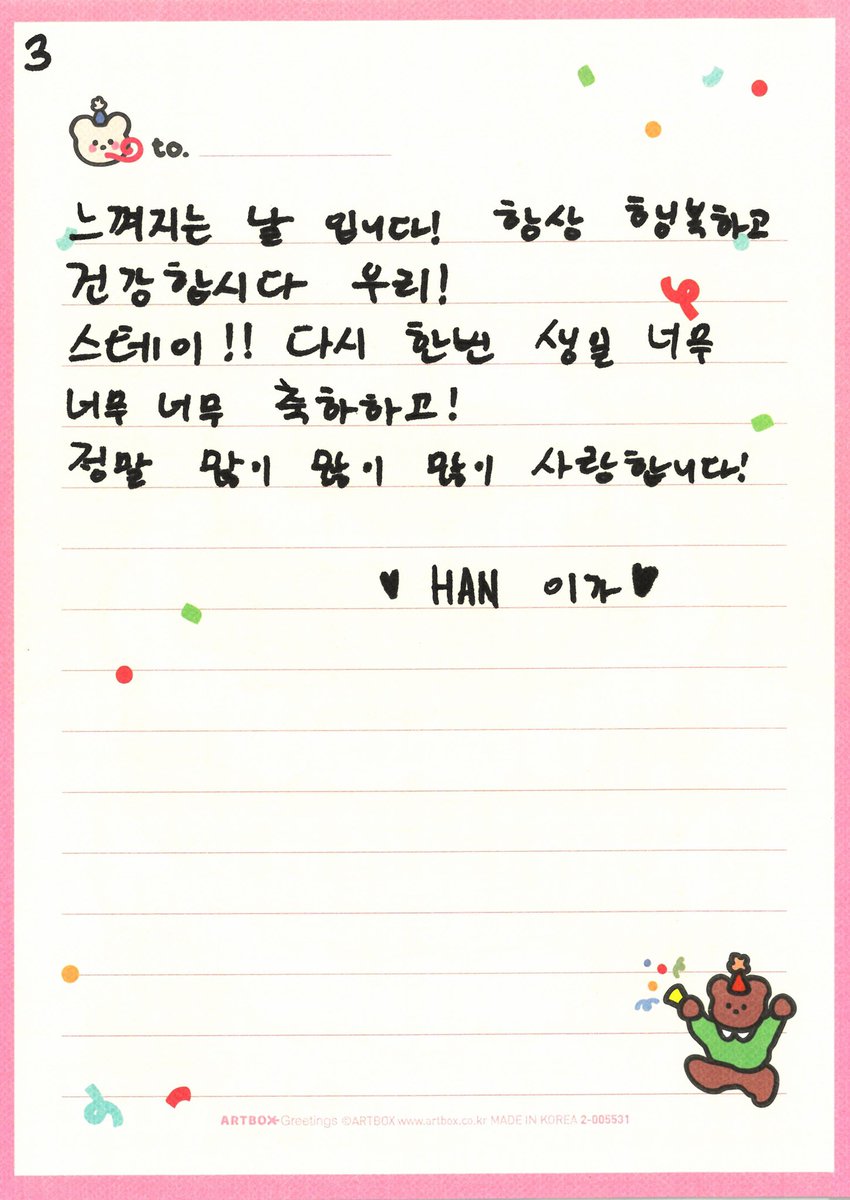 3
to.
느껴지는 날 입니다! 항상 행복하고
건강합시다 우리!
스테이!! 다시 한번 생일 너무
너무 너무 축하하고!
정말 많이 많이 많이 사랑합니다!
♥ HAN 이가 ♥
ARTBOX Greetings ©ARTBOX www.artbox.co.kr MADE IN KOREA 2-005531